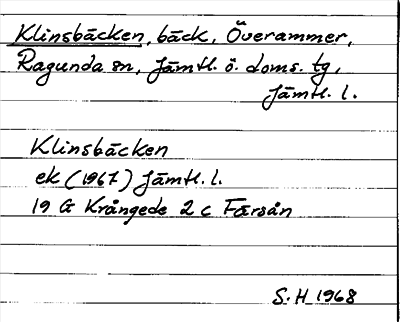 Klinsbäcken, bäck, Överammer,
Ragunda sn, Jämtl. ö. doms. tg,
Jämtl. l.
Klinsbäcken
ek (1967) Jämtl. l.
19 G Krångede 2 c Färsån
S. H 1968